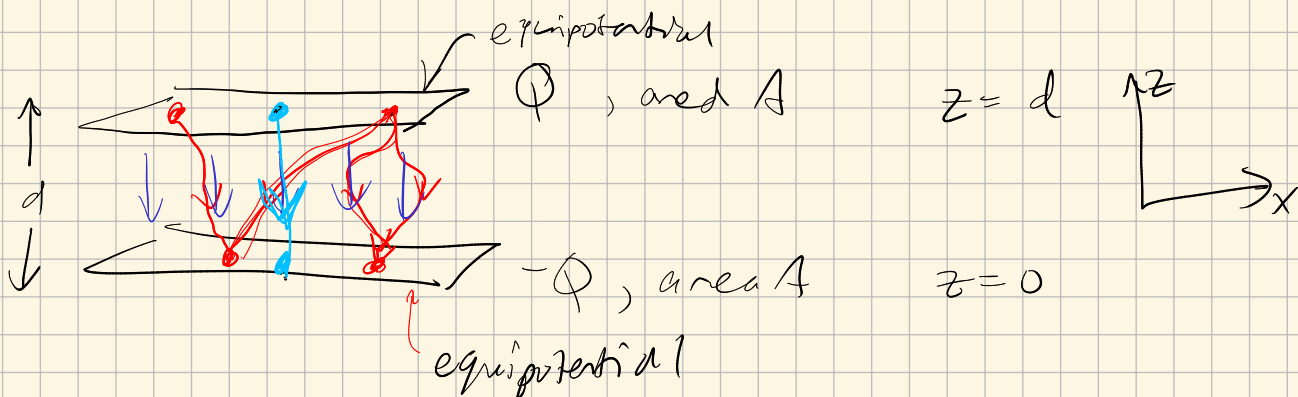 equipotential
Q, area A z = d
z
d
x
-Q, area A z = 0
equipotential